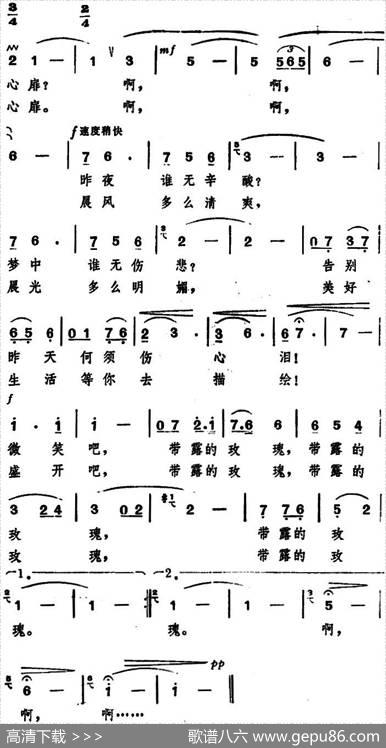 3/4 2/4
2 1 — | 1 3 | mf 5 — | 5 565 | 6 —
心扉? 啊, 啊,
心扉。 啊, 啊,
f 速度稍快
6 — | 7 6 . | 7 5 6 | 3 — | 3 —
昨夜 谁无辛酸?
晨风 多么清爽,
7 6 . | 7 5 6 | 2 — | 2 — | 0 7 3 7
梦中 谁无伤悲? 告别
晨光 多么明媚, 美好
6 5 6 . | 0 1 7 6 | 2 3 . | 3 6 . | 6 7 . | 7 —
昨天 何须伤心泪!
生活 等你去描绘!
f
1 . 1 | 1 — | 0 7 2 . 1 | 7 . 6 6 | 6 5 4
微笑吧, 带露的玫瑰,带露的
盛开吧, 带露的玫瑰,带露的
3 2 4 | 3 0 2 | 2 — | 7 7 6 | 5 2
玫瑰, 带露的玫
玫瑰, 带露的玫
1. 2.
1 — | 1 — :‖ 1 — | 1 — | 5 —
瑰。 瑰。 啊,
pp
6 — | i — | i — ‖
啊, 啊……
高清下载 >>> 歌谱八六 www.gepu86.com